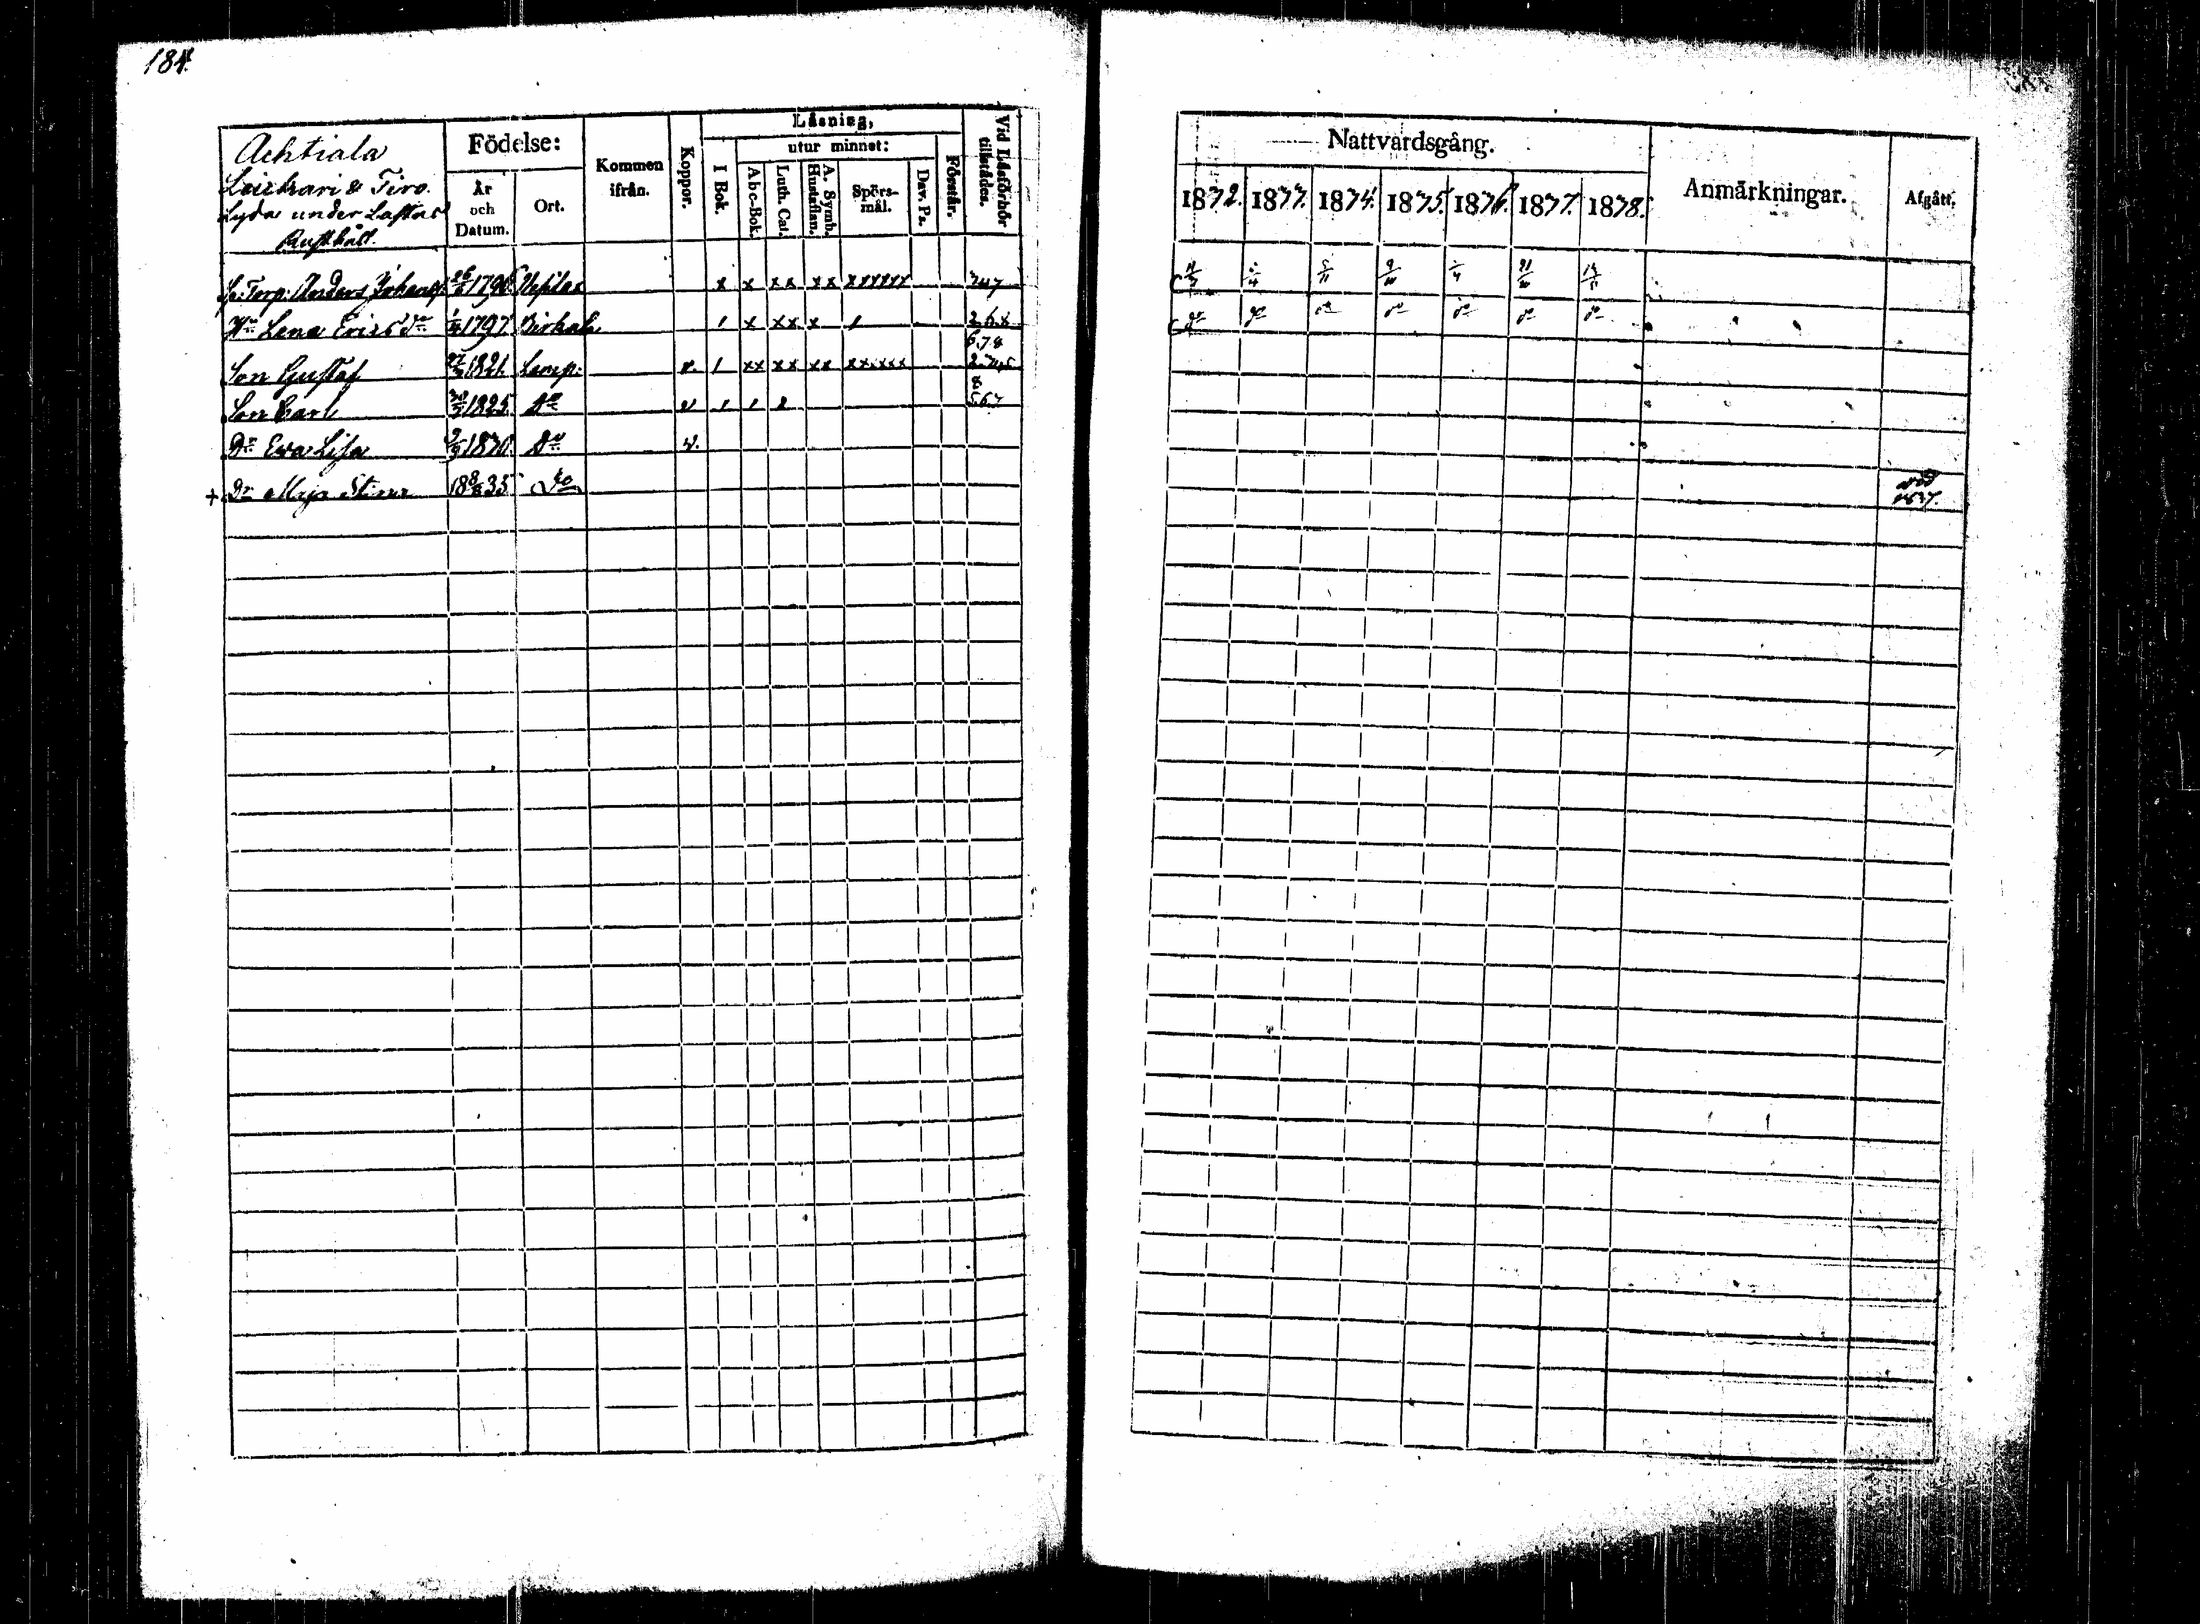 184.
Achtiala
Leickari & Tiro.
Lyda under Laftas
Rusthåll.
Födelse:
År
och
Datum.
Ort.
Kommen
ifrån.
Koppor.
Läsning,
I Bok.
utur minnet:
Abc-Bok.
Luth. Cat.
A. Symb.
Hustaflan.
Spörs-
mål.
Dav. Ps.
Förstår.
Vid Läsförhör
tillstädes.
Torp: Anders Johans 1790 x x xx xx xxxxxx
Hu Lena Ericsdr 1797 Birkala 1 x xx x 1 2.6.8
6.7.8
Son Gustaf 1821. Lemp: v. 1 xx xx xx xxxxxx
8
Son Carl 1825. Do v 1 1 5.6.7
Dr Eva Lisa 1830. Do v.
+ Dr Maja Stina 1835 Do
Nattvardsgång.
1832. 1833. 1834. 1835. 1836. 1837. 1838.
Anmärkningar.
Afgått.
do do do do do do do
död
1837.